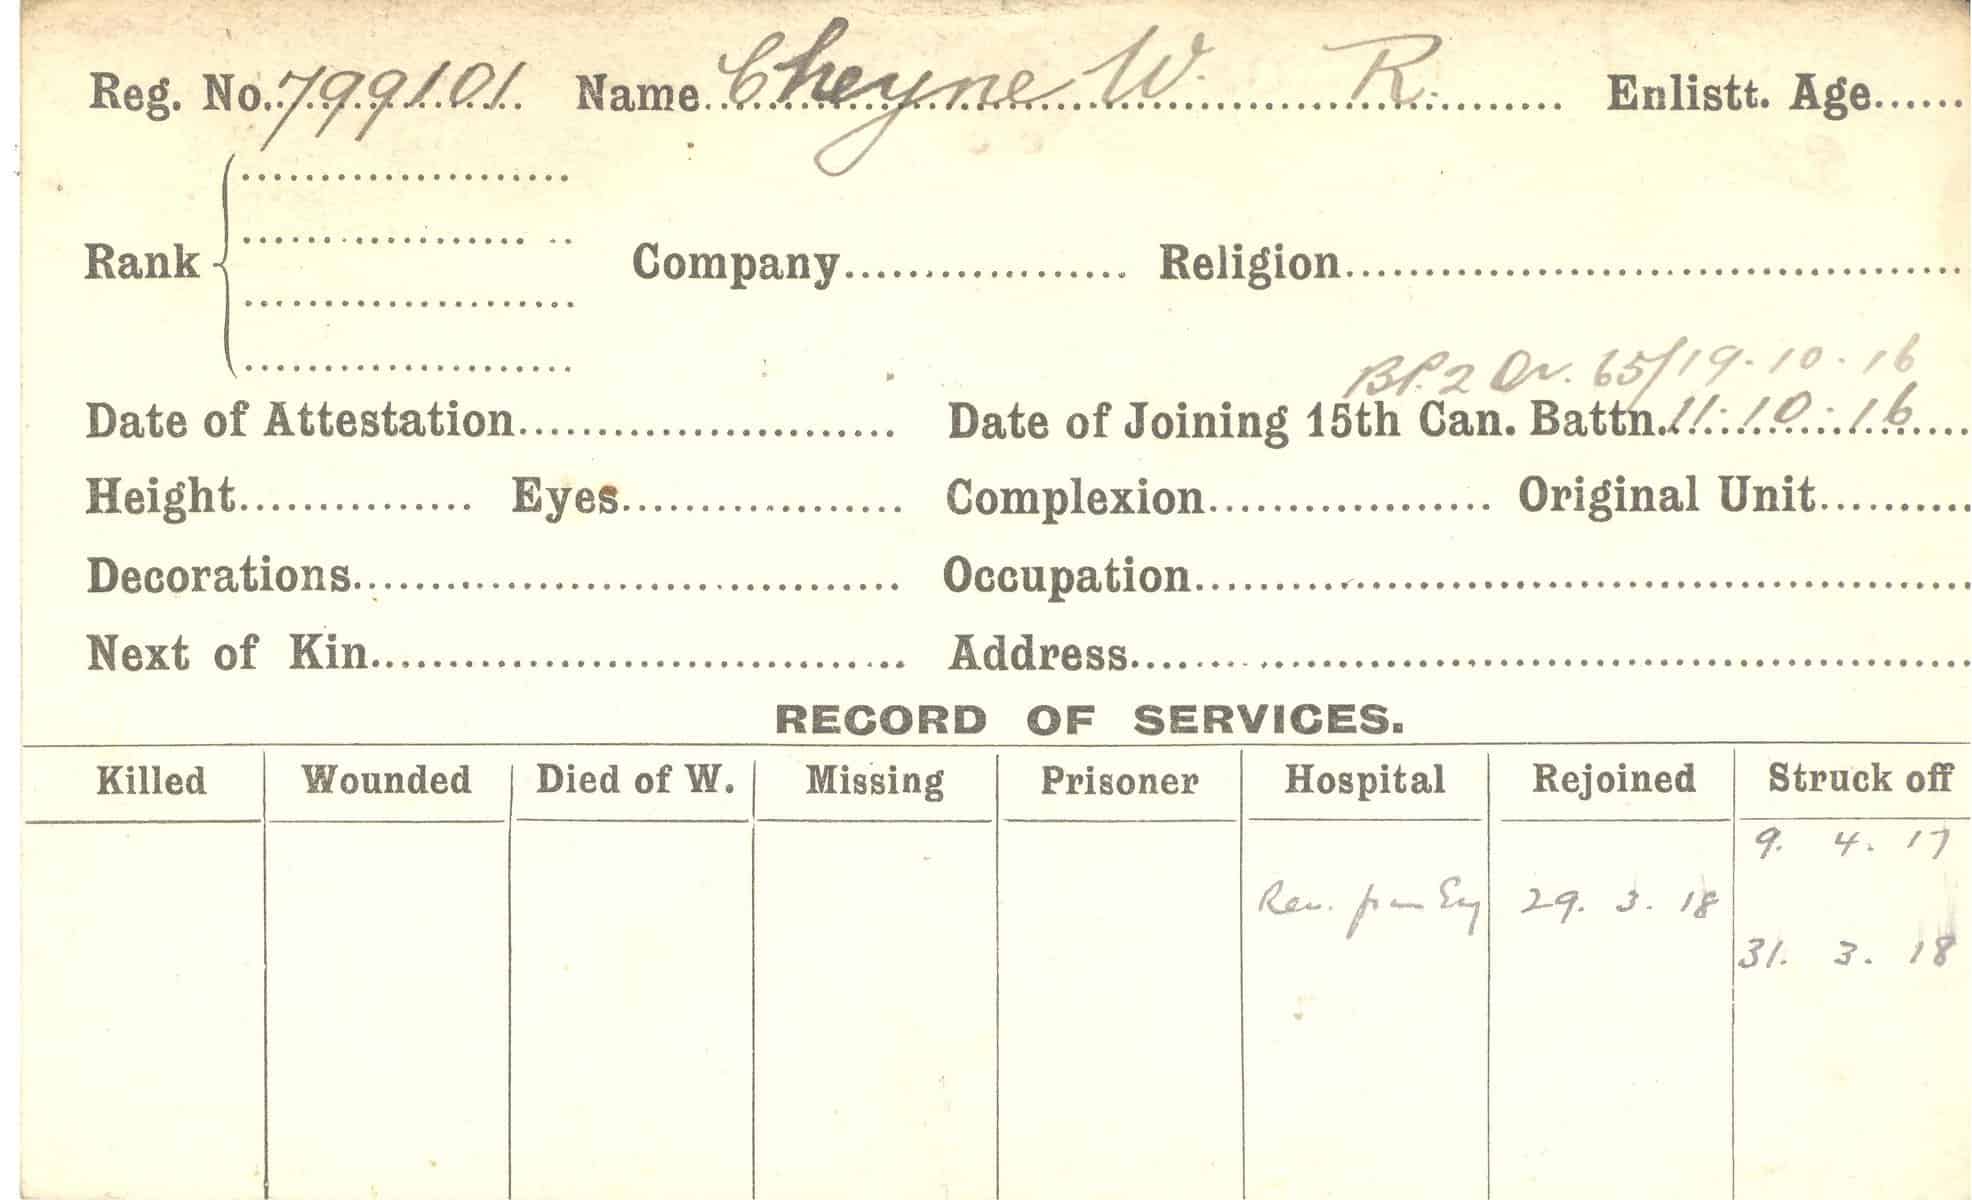 Reg. No. 799101 Name Cheyne W. R. Enlistt. Age
Rank Company Religion
BP.2 Or. 65/19.10.16
Date of Attestation Date of Joining 15th Can. Battn. 11.10.16
Height Eyes Complexion Original Unit
Decorations Occupation
Next of Kin Address
RECORD OF SERVICES.
Killed Wounded Died of W. Missing Prisoner Hospital Rejoined Struck off
9. 4. 17
from Eng 29. 3. 18
31. 3. 18